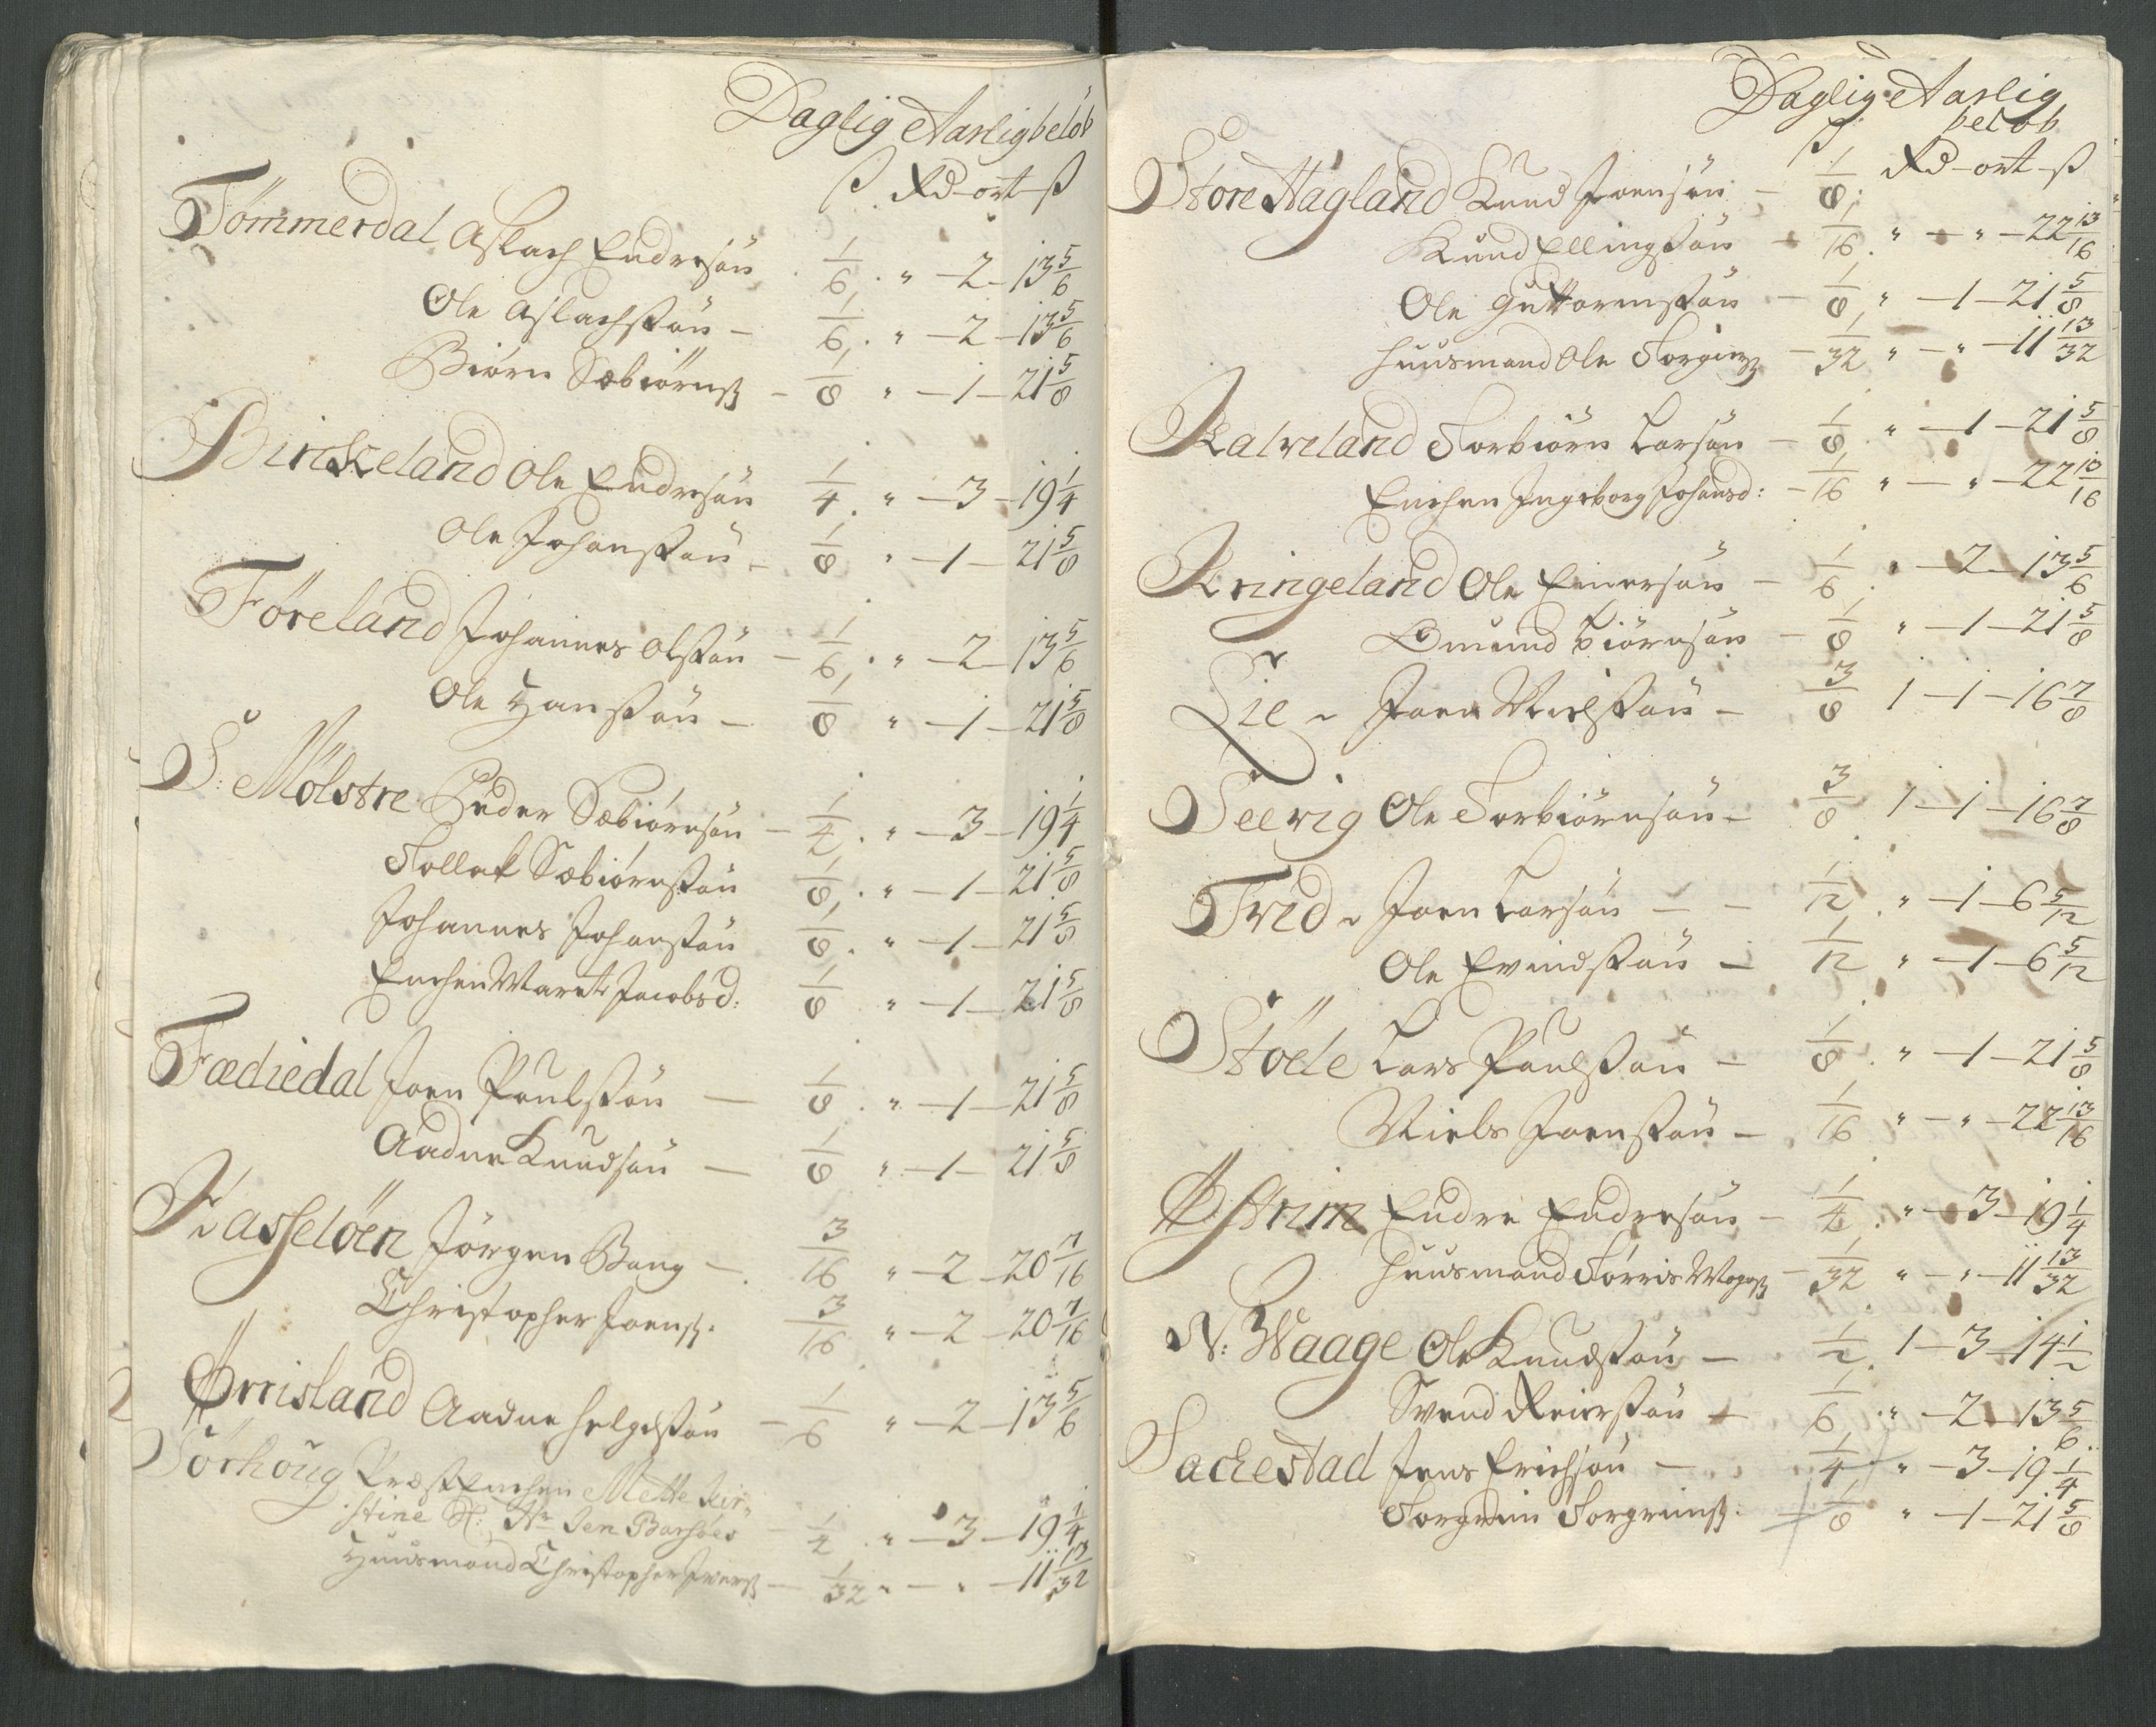 Daglig Aarlig beløb
ß Rd - ort - ß
Tömmerdal Aslach Endresön 1/6 " - 2 - 13 5/6
Ole Aslachssön - 1/6 " - 2 - 13 5/6
Biörn Sæbiörnß - 1/8 " - 1 - 21 5/8
Birckeland Ole Endresön 1/4 " - 3 - 19 1/4
Ole Johanssön - 1/8 " - 1 - 21 5/8
Föreland Johannes Olssön - 1/6 " - 2 - 13 5/6
Ole Hanssön - 1/8 " - 1 - 21 5/8
S: Mölstre Peder Sæbiörnsön - 1/4 " - 3 - 19 1/4
Tollak Sæbiörnssön 1/8 " - 1 - 21 5/8
Johannes Johanssön 1/8 " - 1 - 21 5/8
Enchen Marete Jacobsd: 1/8 " - 1 - 21 5/8
Fædiedal Joen Poulssön - 1/8 " - 1 - 21 5/8
Aadne Knudsön - 1/8 " - 1 - 21 5/8
Hasseløen Jörgen Bang - 3/16 " - 2 - 20 7/16
Christopher Joensß. 3/16 " - 2 - 20 7/16
Ørrisland Aadne Helgessön - 1/6 " - 2 - 13 5/6
Törhoug Præst Enchen Mette Kir-
stine Sl: Hr Jen Barhoes - 1/4 " - 3 - 19 1/4
Huusmand Christopher Iversß - 1/32 " - " - 11 13/32
Daglig Aarlig
beløb
ß Rd - ort - ß
Store Hagland Knud Joensön - 1/8
Knud Ellingssön - 1/16 " - " - 22 13/16
Ole Guttormssön - 1/8 " - 1 - 21 5/8
Huusmand Ole Torgiersß - 1/32 " - " - 11 13/32
Kalveland Torbiörn Larsön - 1/8 " - 1 - 21 5/8
Enchen Ingeborg Johansd: - 1/16 " - " - 22 13/16
Kringeland Ole Einersön - 1/6 " - 2 - 13 5/6
Omund Biörnsön - 1/8 " - 1 - 21 5/8
Lie - Joen Nielssön - 3/8 1 - 1 - 16 7/8
Seevig Ole Torbiörnsön - 3/8 1 - 1 - 16 7/8
Tved - Joen Larsön - - 1/12 " - 1 - 6 5/12
Ole Evindssön - 1/12 " - 1 - 6 5/12
Stöele Lars Poulssön - 1/8 " - 1 - 21 5/8
Niels Joenssön - 1/16 " - " - 22 13/16
Endre Endresön - 1/4 " - 3 - 19 1/4
Huusmand Törris - 1/32 " - " - 11 13/32
N: Waage Ole Knudssön - 1/2 1 - 3 - 14 1/2
Svend Reierssön - 1/6 " - 2 - 13 5/6
Sackestad Jens Erichsön - 1/4 " - 3 - 19 1/4
Torgrim Torgrimsß: 1/8 " - 1 - 21 5/8